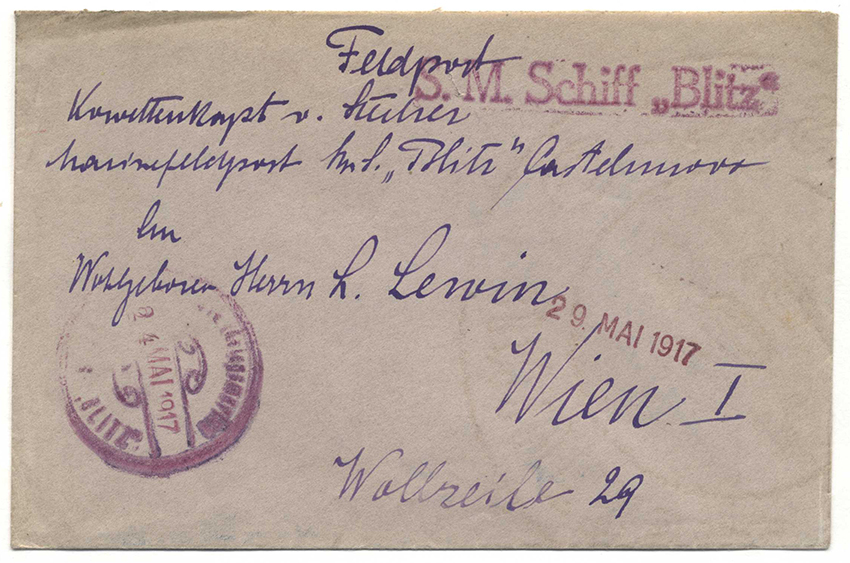 Feldpost
S. M. Schiff „Blitz“
Korvettenkapt v.
Marinefeldpost „Blitz“ Castelnuovo
An
Wohlgeboren Herrn L. Lewin
29. MAI 1917
Wien I
24 MAI 1917
BLITZ
Wollzeile 29